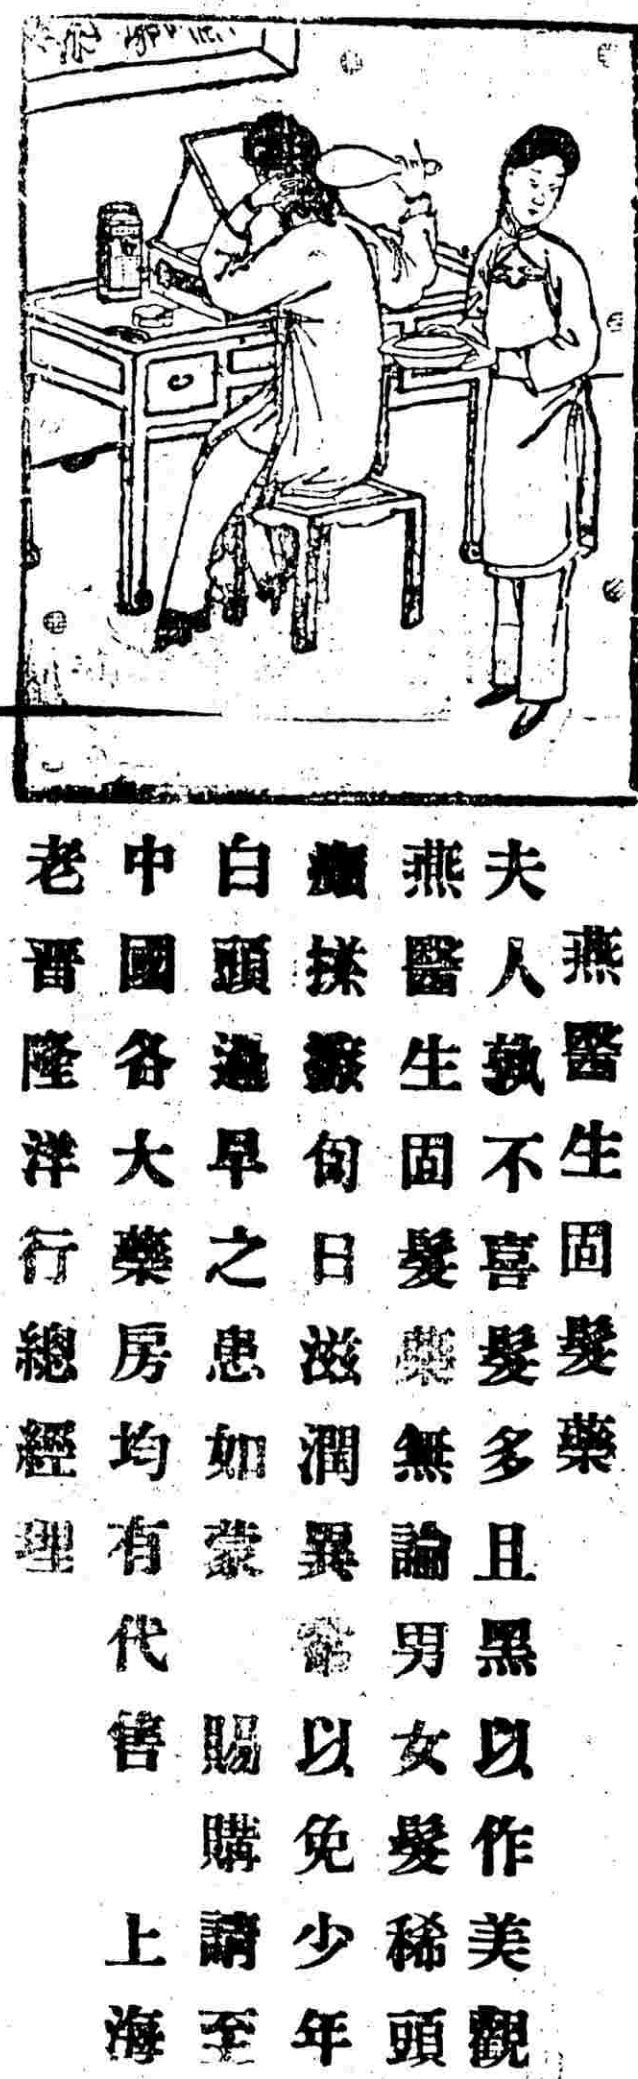 燕醫生固髮藥
夫人孰不喜髮多且黑以作美觀
燕醫生固髮藥無論男女髮稀頭
癩搽數旬日滋潤異常以免少年
白頭過早之患如蒙 賜購請至
中國各大藥房均有代售 上海
老晉隆洋行總經理